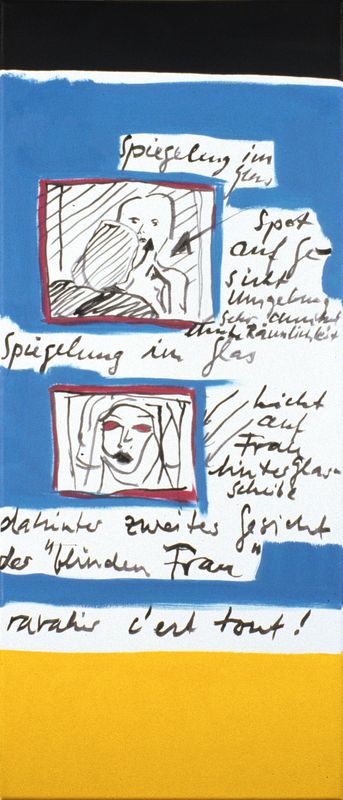 Spiegelung im
Glas
Spot
auf Ge
sicht
Umgebung
sehr dunkel
Räumlichkeit
Spiegelung im Glas
Licht
auf
Frau
hinter Glas-
scheibe
dahinter zweites Gesicht
der "blinden Frau"
c'est tout!